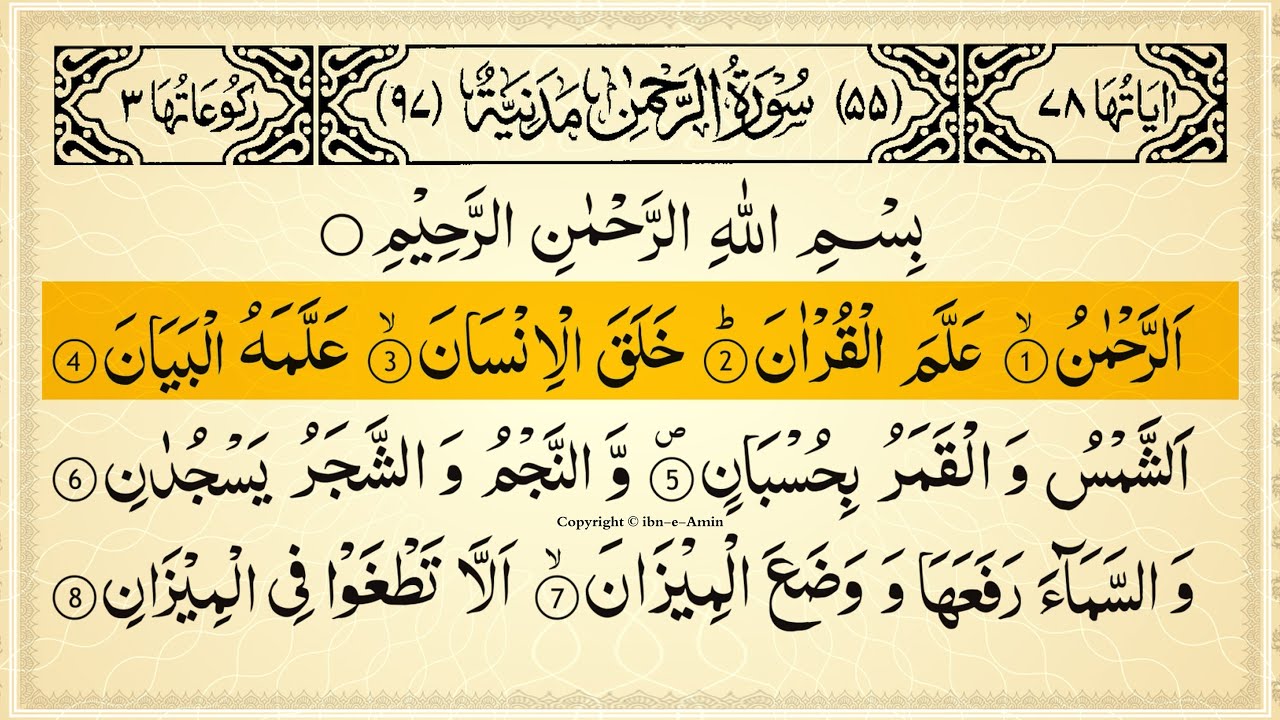 اٰيَاتُهَا ٧٨ (٥٥) سُوْرَةُ الرَّحْمٰنِ مَدَنِيَّةٌ (٩٧) رُكُوْعَاتُهَا ٣
بِسْمِ اللّٰهِ الرَّحْمٰنِ الرَّحِيْمِ ○
اَلرَّحْمٰنُ ۙ ① عَلَّمَ الْقُرْاٰنَ ؕ ② خَلَقَ الْاِنْسَانَ ۙ ③ عَلَّمَهُ الْبَيَانَ ④
اَلشَّمْسُ وَ الْقَمَرُ بِحُسْبَانٍ ۪ ⑤ وَّ النَّجْمُ وَ الشَّجَرُ يَسْجُدٰنِ ⑥
Copyright © ibn-e-Amin
وَ السَّمَآءَ رَفَعَهَا وَ وَضَعَ الْمِيْزَانَ ۙ ⑦ اَلَّا تَطْغَوْا فِى الْمِيْزَانِ ⑧